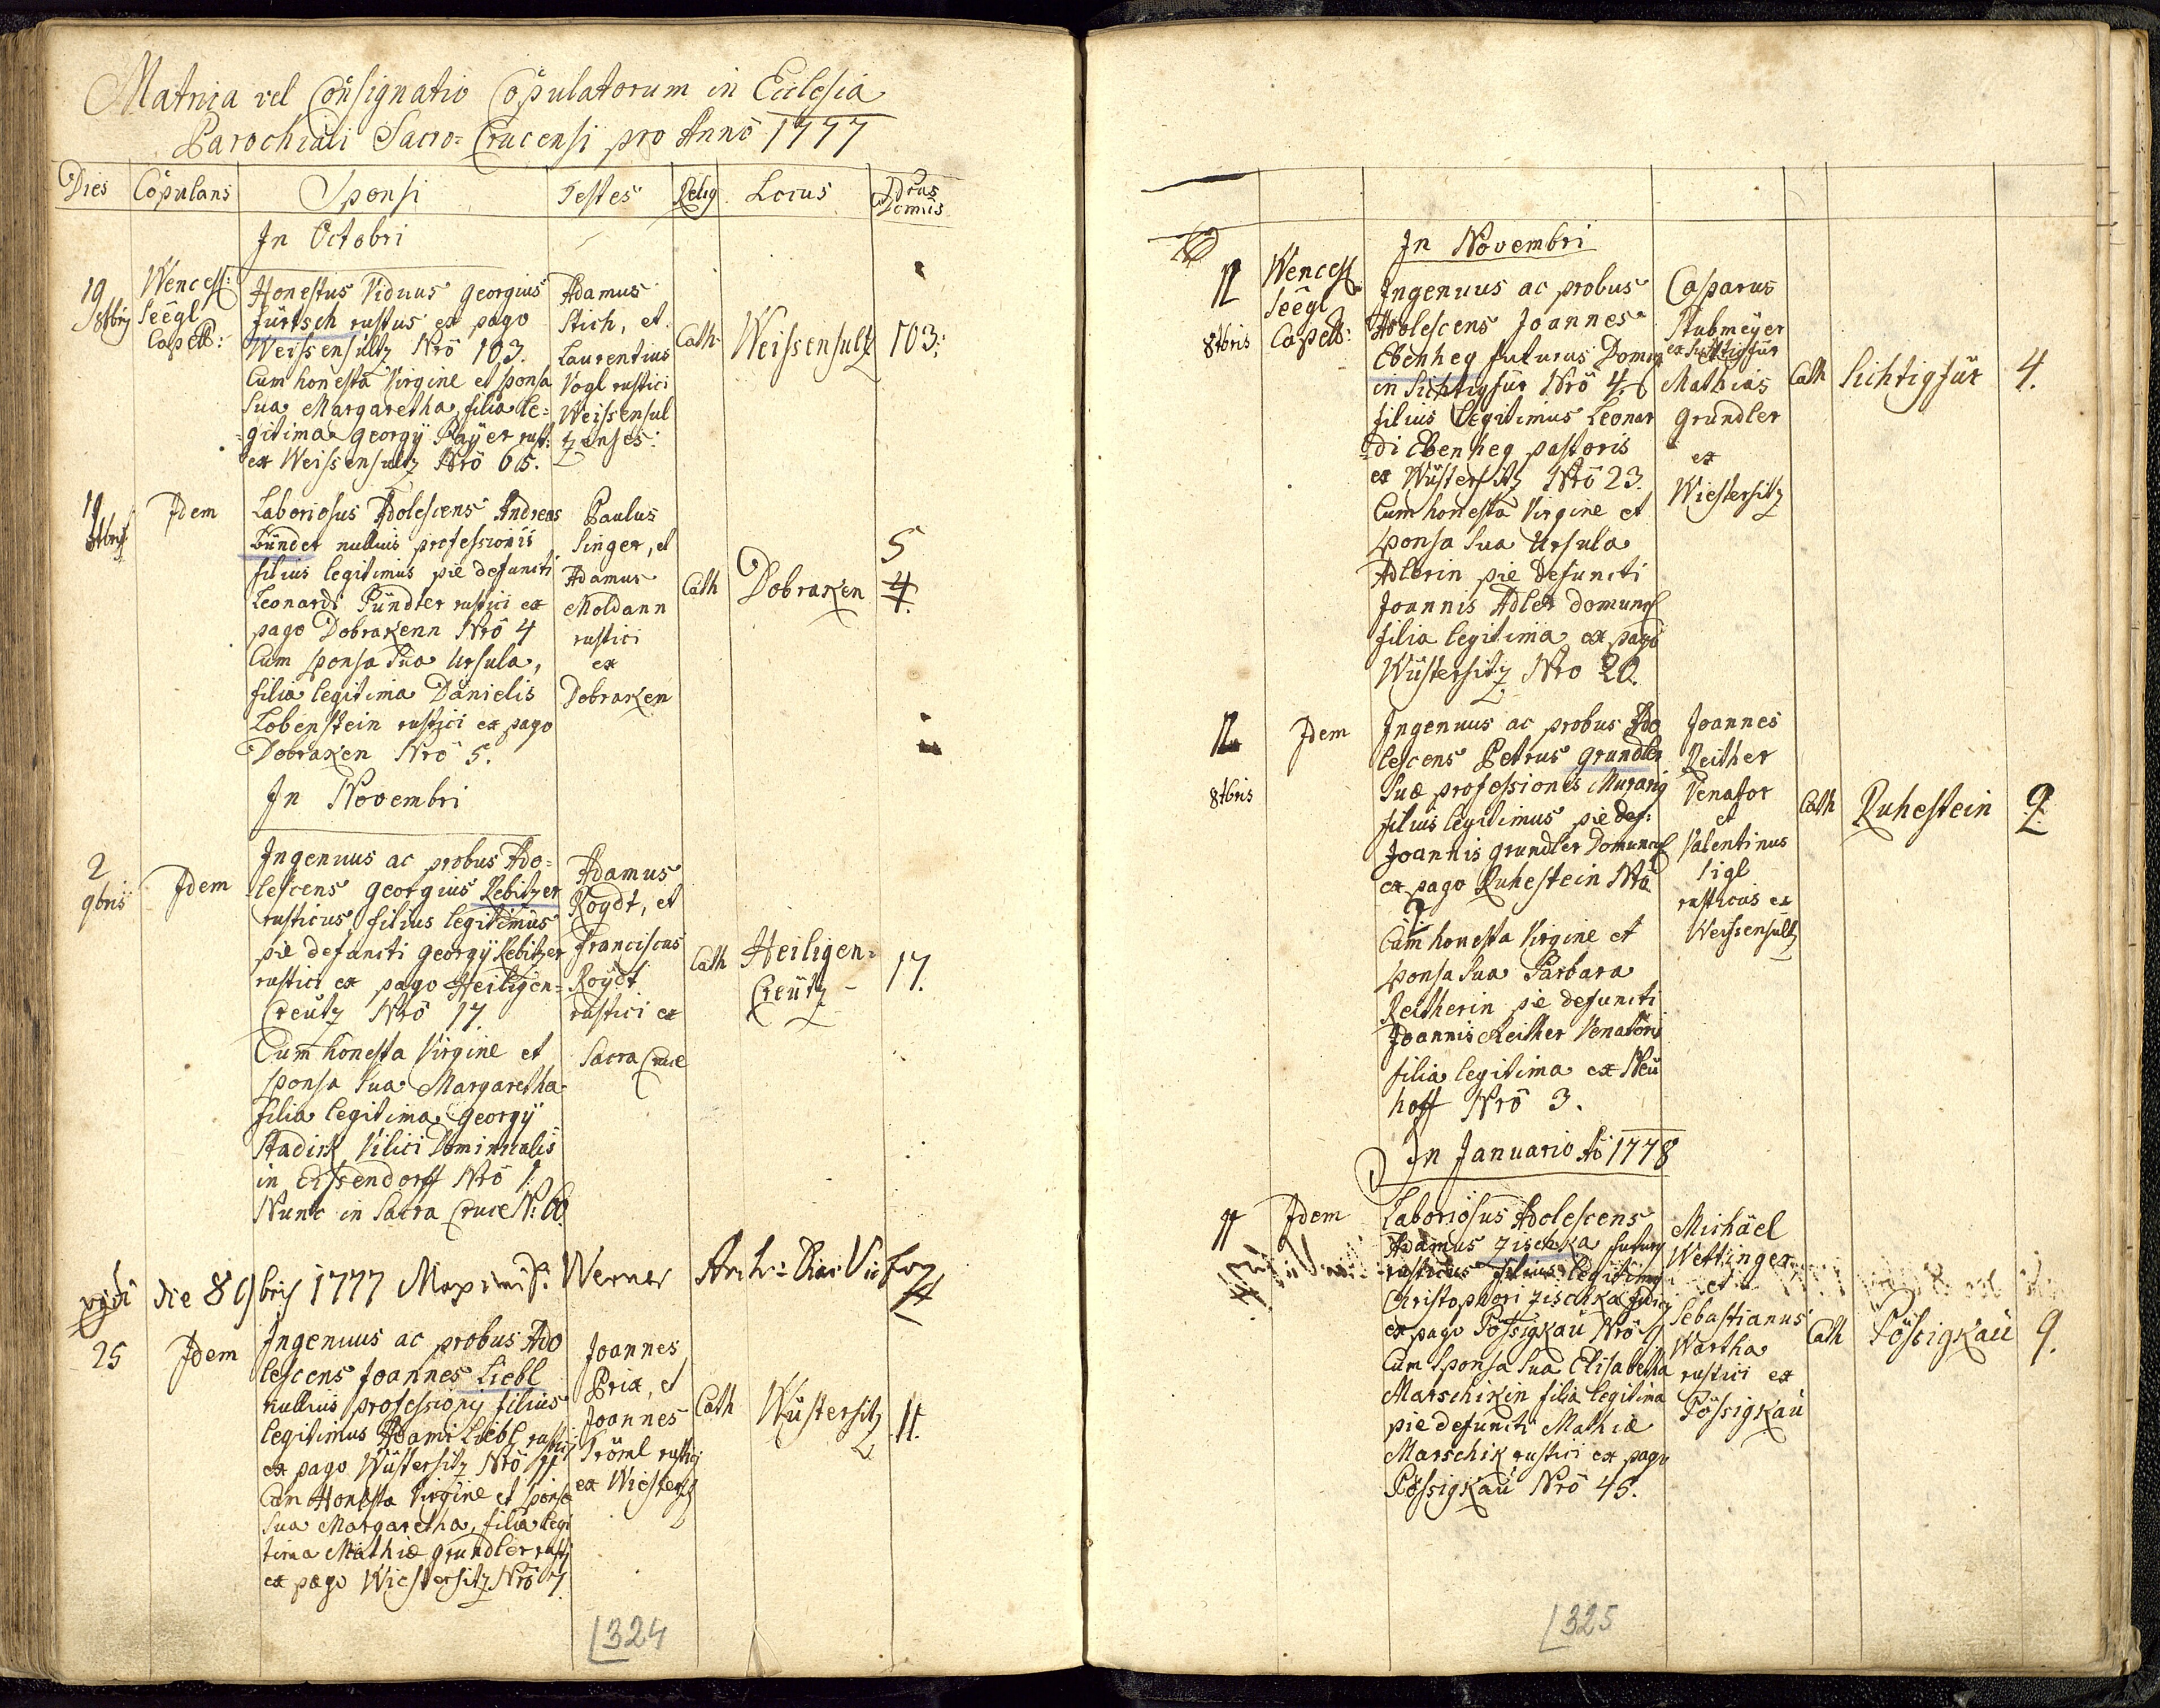 Matrica vel Consignatio Copulatorum in Ecclesia
Parochiali Sacro-Crucensi pro Anno 1777
Dies Copulans Sponsi Testes Relig Locus Nrus Domus
In Octobri
19 8tbris
Wencesl:
Seegl
Capell:
Honestus Viduus Georgius
Fürtsch rusticus ex pago
Weissensultz Nro 103.
Cum honesta Virgine et sponsa
sua Margaretha, filia le=
gitima Georgÿ Paÿer rust:
ex Weissensultz Nro 65.
Adamus
Stich, et
Laurentius
Vogl rustici
Weissensul
tzenses:
Cath
Weissensultz
103:
19 8tbris
Idem
Laboriosus Adolescens Andreas
Bünder nullius professionis
filius legitimus pie defuncti
Leonardi Pündter rustici ex
pago Dobrakenn Nro 4
Cum sponsa sua Ursula,
filia legitima Danielis
Lobenstein rustici ex pago
Dobraken Nro 5.
Paulus
Singer, et
Adamus
Moldann
rustici
ex
Dobraken
Cath
Dobraken
5
4.
In Novembri
2
9bris
Idem
Ingenuus ac probus Ado=
lescens Georgius Rebitzer
rusticus, filius legitimus
pie defuncti Georgÿ Rebitzer
rustici ex pago Heiligen=
Creütz Nro 17
Cum honesta Virgine et
sponsa sua Margaretha
filia legitima Georgÿ
Stadirk Vilici Dominicalis
in Eisendorff Nro 1.
Nunc in Sacra Cruce N: 60.
Adamus
Roÿdt, et
Franciscus
Roÿdt
rustici ex
Sacra Cruce
Cath
Heiligen=
Creütz
17.
vidi die 8 9bris 1777 Maximil: Werner Arch: Diac: Vic For
25
Idem
Ingenuus ac probus Ado
lescens Joannes Liebl
nullius professionis filius
legitimus Adami Liebl rustici
ex pago Wüstersitz Nro 11
Cum Honesta Virgine et sponsa
sua Margaretha, filia legi
tima Mathiæ Grundler rustici
ex pago Wiestersitz Nro 7.
Joannes
Prix, et
Joannes
Tröml rustici
ex Wiestersitz
Cath
Wüstersitz
11.
In Novembri
12
8tbris
Wencesl
Seegl
Capell:
Ingenuus ac probus
Adolescens Joannes
Ebenheg futurus Domin
in Sichtigfür Nro 4.
filius legitimus Leonar
di Ebenheg pastoris
ex Wüstersitz Nro 23.
Cum honesta Virgine et
sponsa sua Ursula
Adlerin pie defuncti
Joannis Adler domunc
filia legitima ex pago
Wüstersitz Nro 20.
Casparus
Stubmeÿer
ex Sichtigfür
Mathias
Grundler
ex
Wiestersitz
Cath
Sichtigfür
4.
12
8tbris
Idem
Ingenuus ac probus Ado
lescens Petrus Grundler
Suæ professionis Murarij
filius legitimus pie def:
Joannis Grundler Domunc
ex pago Ruhestein Nro
2
Cum honesta Virgine et
sponsa sua Barbara
Reitherin pie defuncti
Joannis Reither Venatoris
filia legitima ex Neü
hoff Nro 3.
Joannes
Reither
Venator
et
Valentinus
Sigl
rusticus ex
Weissensultz
Cath
Ruhestein
2.
In Januario Ao 1778
11
Idem
Laboriosus Adolescens
Adamus Zischka futurus
rusticus filius legitimus
Christophori Zischka
ex pago Pössigkau Nro 9
Cum Sponsa Sua Elisabetha
Marschikin filia legitima
pie defuncti Mathiæ
Marschik rustici ex pago
Pössigkau Nro 45.
Michäel
Wettinger
et
Sebastianus
Wartha
rustici ex
Pössigkau
Cath
Pössigkau
9.
324
325